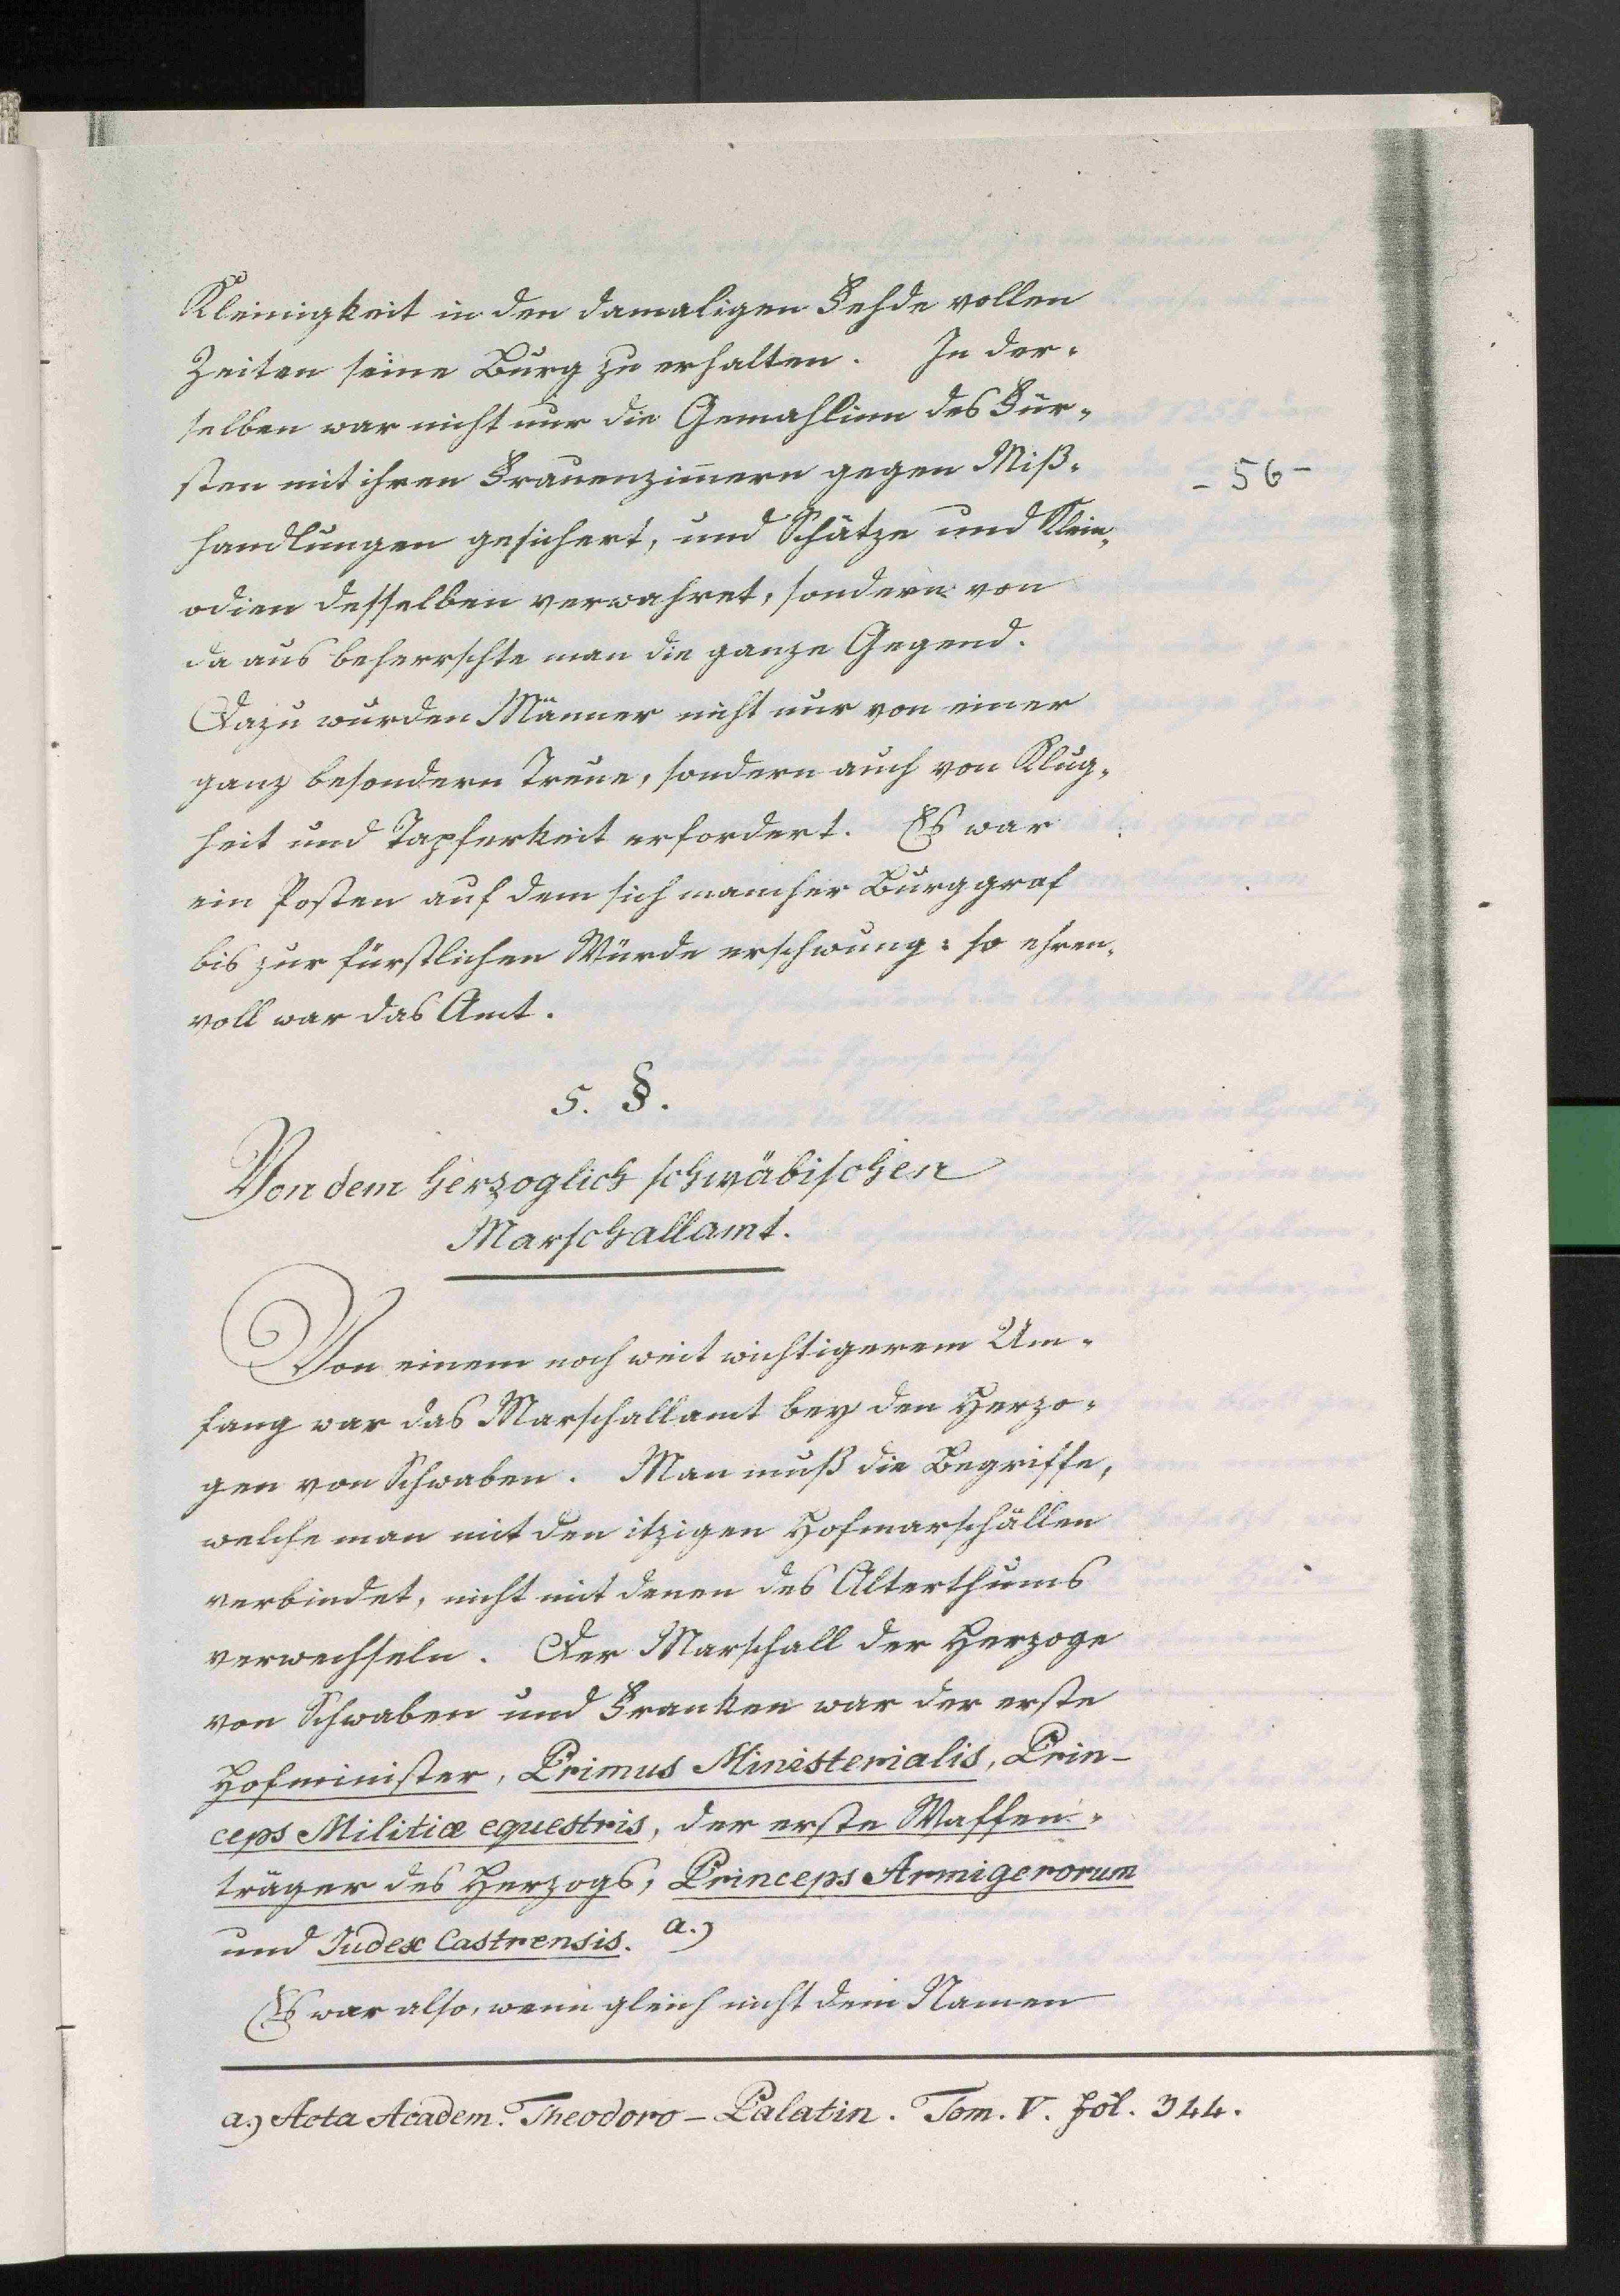 Kleinigkeit in den damaligen Fehde vollen
Zeiten seine Burg zu erhalten. In der-
selben war nicht nur die Gemahlinn des Für-
sten mit ihren Frauenzimmern gegen Miß-
- 56 -
handlungen gesichert, und Schätze und Klein-
odien desselben verwahret, sondern von
da aus beherrschte man die ganze Gegend.
Dazu wurden Männer nicht nur von einer
ganz besondern Treue, sondern auch von Klug-
heit und Tapferkeit erfordert. Es war
ein Posten auf dem sich mancher Burggraf
bis zur fürstlichen Würde erschwung: so ehren-
voll war das Amt.
5. §.
Von dem herzoglich schwäbischen
Marschallamt.
Von einem noch weit wichtigerem Um-
fang war das Marschallamt bey den Herzo-
gen von Schwaben. Man muß die Begriffe,
welche man mit den itzigen Hofmarschällen
verbindet, nicht mit denen des Alterthums
verwechseln. Der Marschall der Herzoge
von Schwaben und Franken war der erste
Hofminister, Primus Ministerialis, Prin-
ceps Militiæ equestris, der erste Waffen-
träger des Herzogs, Princeps Armigerorum
und Judex Castrensis. a.)
Es war also, wenn gleich nicht dem Namen
a.) Acta Academ. Theodoro - Palatin. Tom. V. fol. 344.